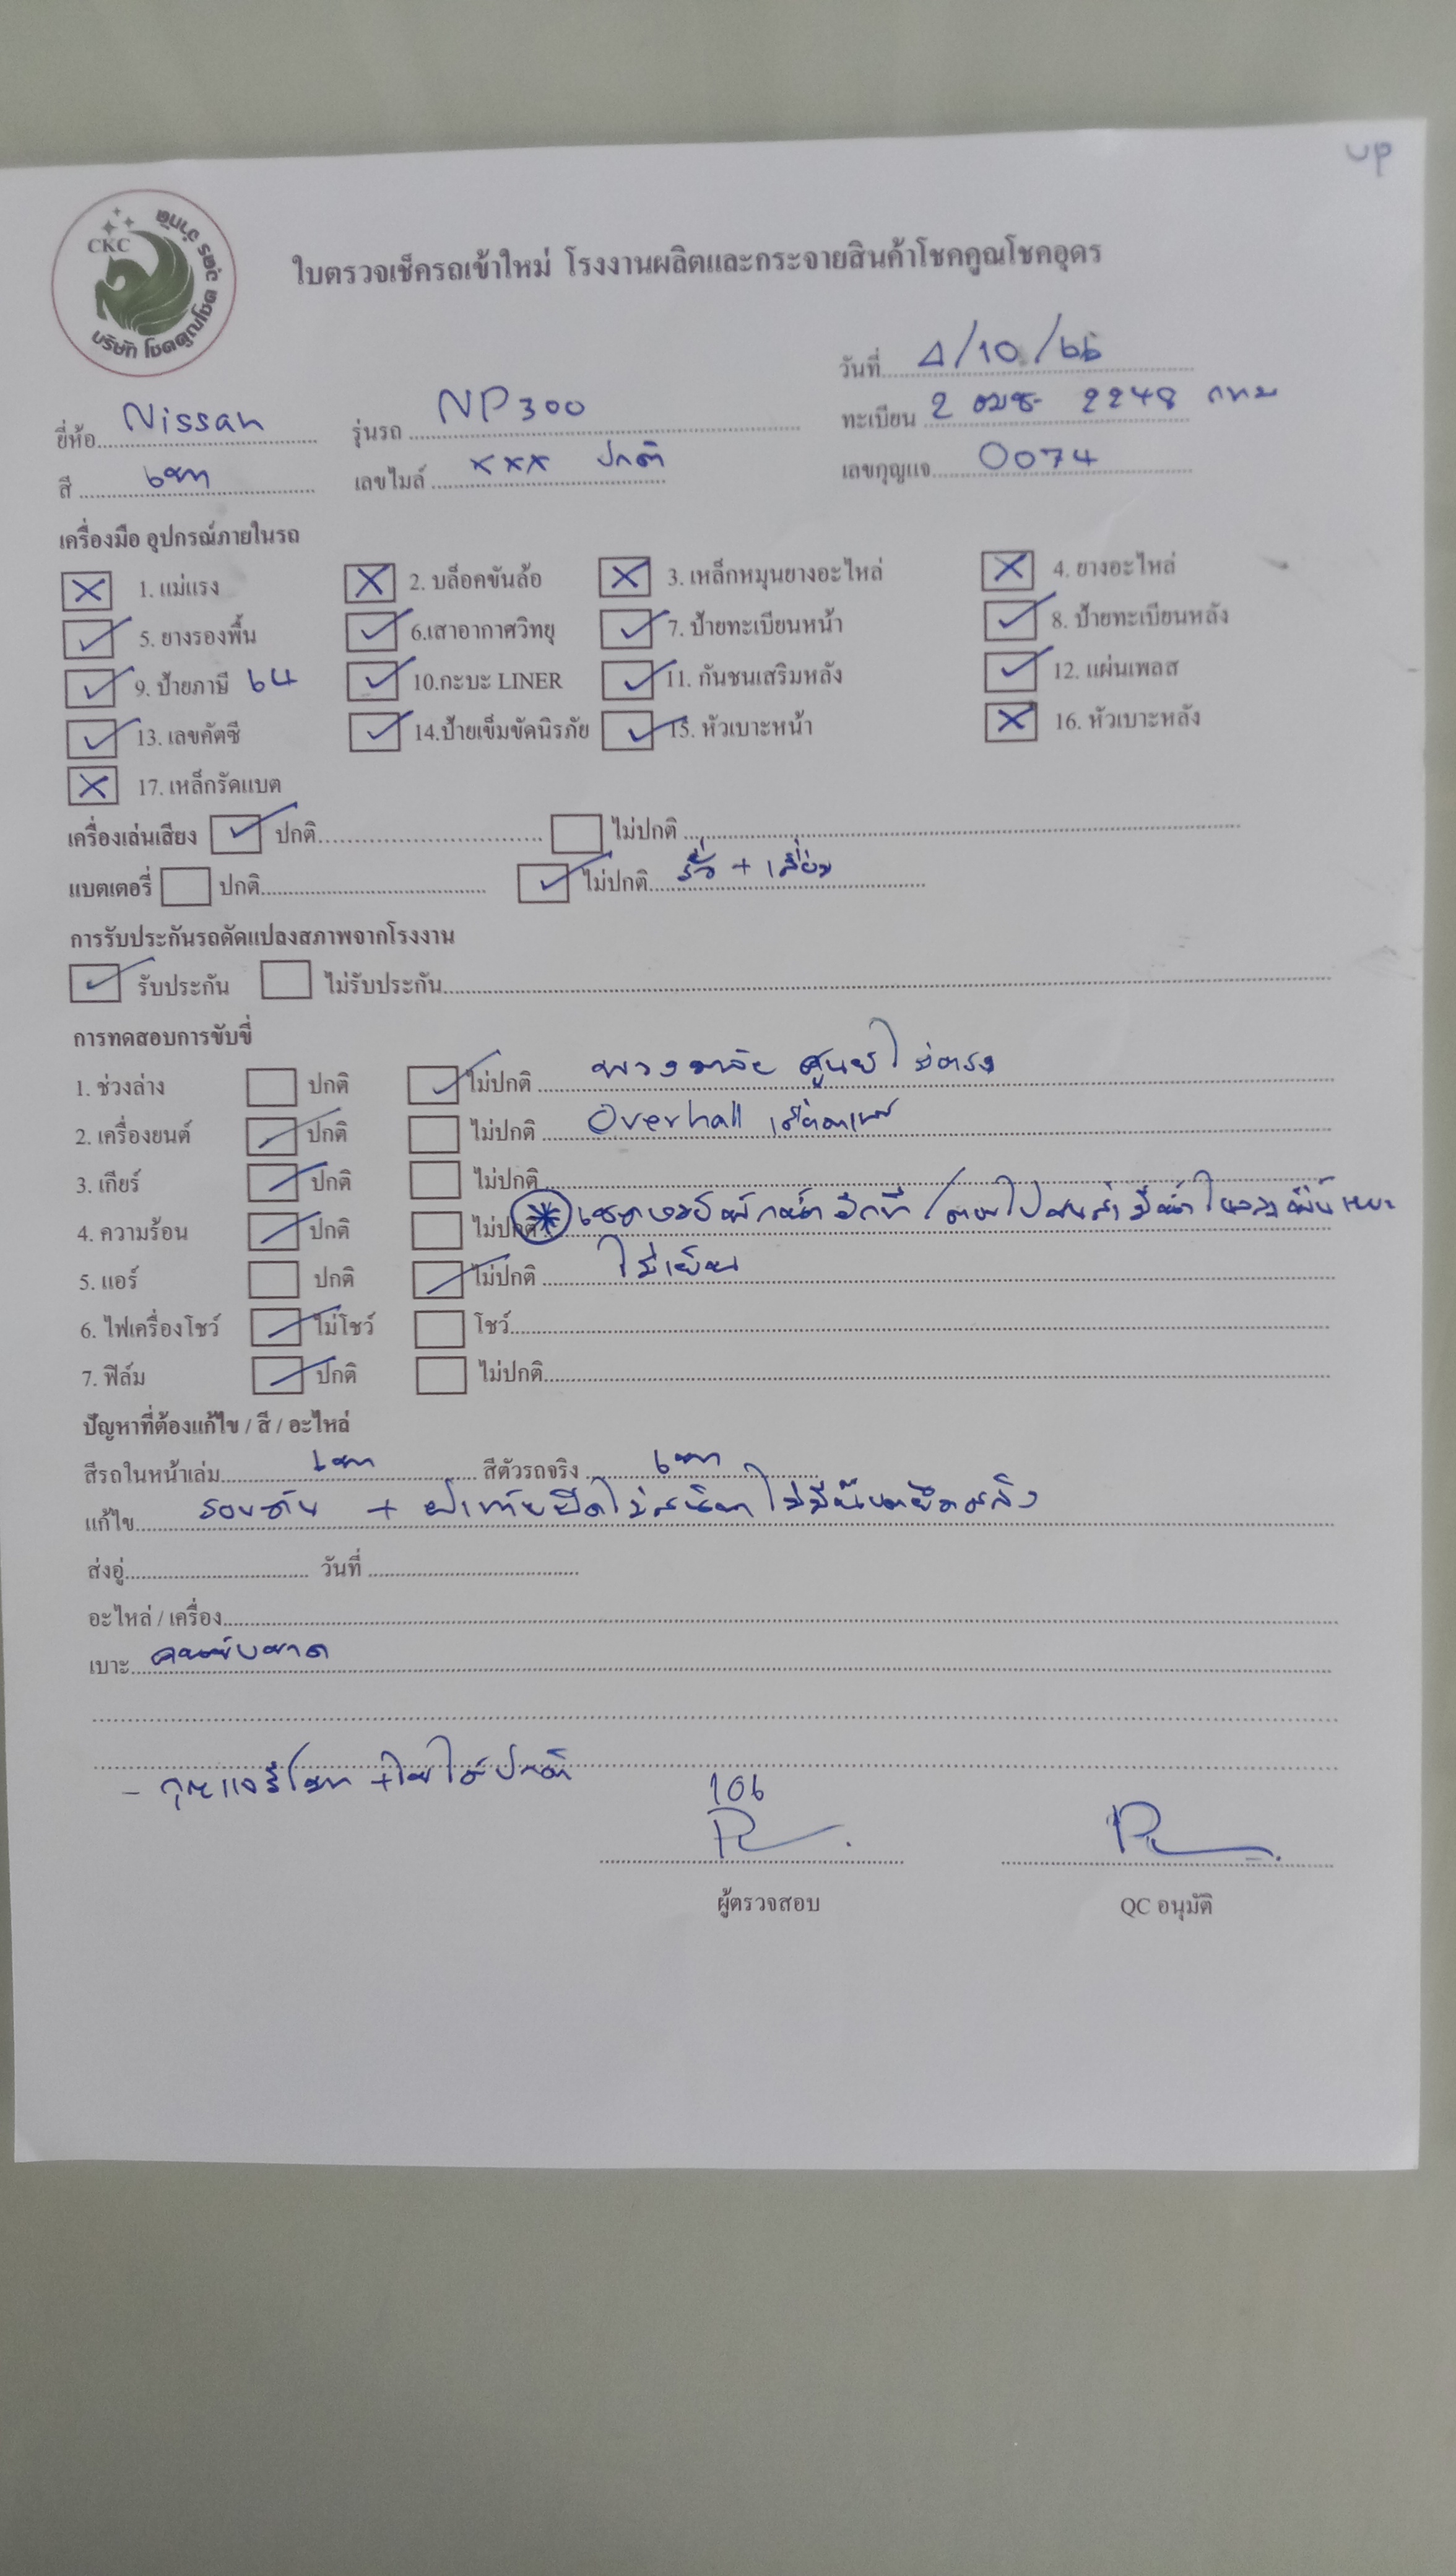 up
CKC
บริษัท โชคคูณโชค อุดร จำกัด
ใบตรวจเช็ครถเข้าใหม่ โรงงานผลิตและกระจายสินค้าโชคคูณโชคอุดร
วันที่ 4/10/66
ยี่ห้อ Nissan รุ่นรถ NP300 ทะเบียน 2 ฒษ 2248 กทม
สี เทา เลขไมล์ xxx ปกติ เลขกุญแจ 0074
เครื่องมือ อุปกรณ์ภายในรถ
1. แม่แรง 2. บล็อคขันล้อ 3. เหล็กหมุนยางอะไหล่ 4. ยางอะไหล่
5. ยางรองพื้น 6.เสาอากาศวิทยุ 7. ป้ายทะเบียนหน้า 8. ป้ายทะเบียนหลัง
9. ป้ายภาษี 64 10.กะบะ LINER 11. กันชนเสริมหลัง 12. แผ่นเพลส
13. เลขคัตซี 14.ป้ายเข็มขัดนิรภัย 15. หัวเบาะหน้า 16. หัวเบาะหลัง
17. เหล็กรัดแบต
เครื่องเล่นเสียง ปกติ ไม่ปกติ
แบตเตอรี่ ปกติ ไม่ปกติ รั่ว + เสื่อม
การรับประกันรถดัดแปลงสภาพจากโรงงาน
รับประกัน ไม่รับประกัน
การทดสอบการขับขี่
1. ช่วงล่าง ปกติ ไม่ปกติ พวงมาลัย ศูนย์ไม่ตรง
2. เครื่องยนต์ ปกติ ไม่ปกติ Overhall
3. เกียร์ ปกติ ไม่ปกติ
4. ความร้อน ปกติ ไม่ปกติ
5. แอร์ ปกติ ไม่ปกติ ไม่เย็น
6. ไฟเครื่องโชว์ ไม่โชว์ โชว์
7. ฟิล์ม ปกติ ไม่ปกติ
ปัญหาที่ต้องแก้ไข / สี / อะไหล่
สีรถในหน้าเล่ม เทา สีตัวรถจริง เทา
แก้ไข รอบคัน + ฝาท้ายปิดไม่สนิท
ส่งอู่ วันที่
อะไหล่ / เครื่อง
เบาะ คนขับขาด
- กุญแจรีโมท
106
ผู้ตรวจสอบ QC อนุมัติ